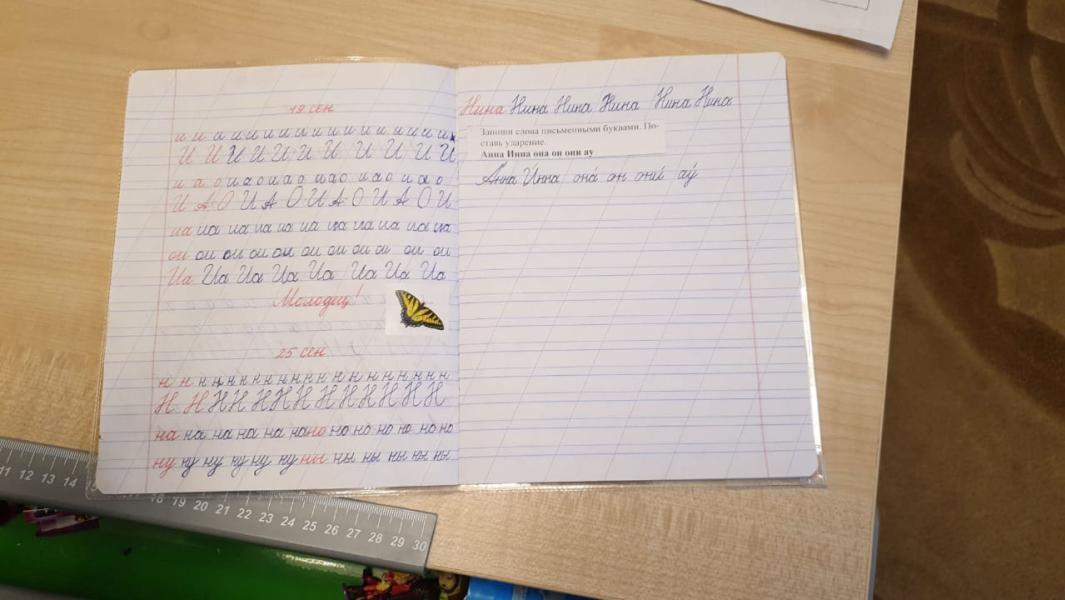 19 сен
и и и и и и и и и и и и и и и и и
И И И И И И И И И И И
и а о и а о и а о и а о и а о и а о
И А О И А О И А О И А О И
иа иа иа иа иа иа иа иа иа иа
ои ои ои ои ои ои ои ои ои ои ои
Иа Иа Иа Иа Иа Иа Иа Иа
Молодец!
25 сен
н н н н н н н н н н н н н н н н н н
Н Н Н Н Н Н Н Н Н Н Н Н
на на на на на на но но но но но но но
ну ну ну ну ну ну ны ны ны ны ны ны
Нина Нина Нина Нина Нина Нина
Запиши слова письменными буквами. По-
ставь ударение.
Анна Инна она он они ау
А́нна И́нна она́ он они́ ау́
11 12 13 14 16 18 19 20 21 22 23 24 25 26 27 28 29 30